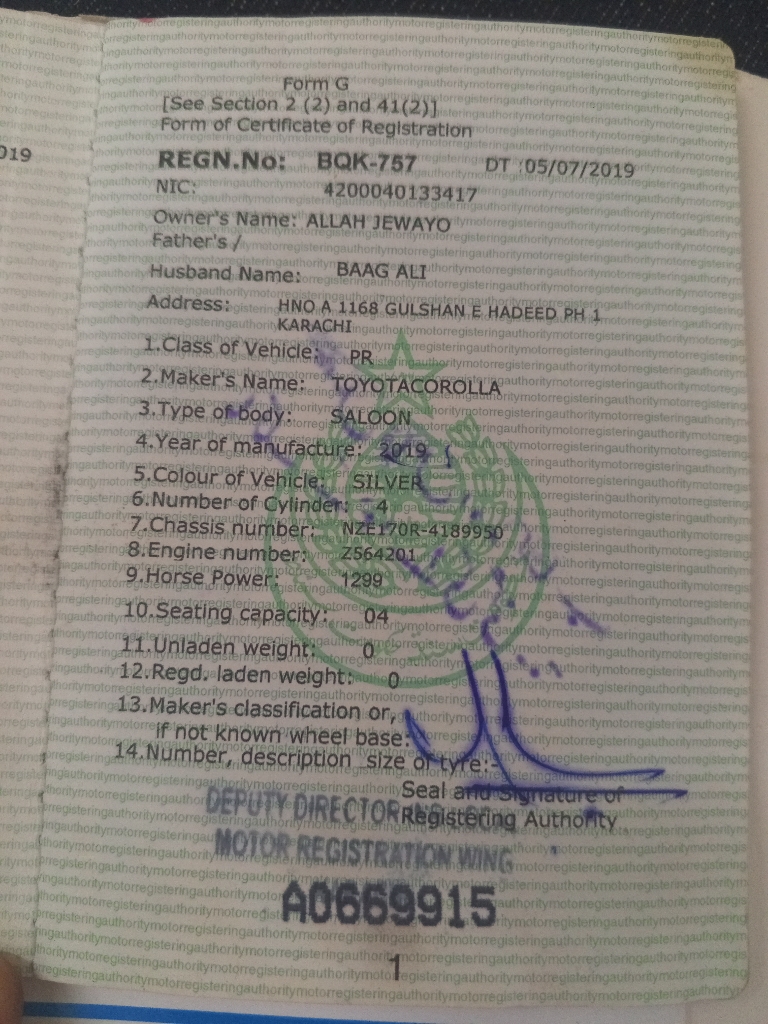 019
Form G
[See Section 2 (2) and 41(2)]
Form of Certificate of Registration
REGN.No: BQK-757 DT :05/07/2019
NIC: 4200040133417
Owner's Name: ALLAH JEWAYO
Father's /
Husband Name: BAAG ALI
Address: HNO A 1168 GULSHAN E HADEED PH 1
KARACHI
1.Class of Vehicle: PR
2.Maker's Name: TOYOTACOROLLA
3.Type of body: SALOON
4.Year of manufacture: 2019
5.Colour of Vehicle: SILVER
6.Number of Cylinder: 4
7.Chassis number: NZE170R-4189950
8.Engine number: Z564201
9.Horse Power: 1299
10.Seating capacity: 04
11.Unladen weight: 0
12.Regd. laden weight: 0
13.Maker's classification or,
if not known wheel base:
14.Number, description size of tyre:-
Seal and Signature of
DEPUTY DIRECTOR
Registering Authority
MOTOR REGISTRATION WING
A0669915
1